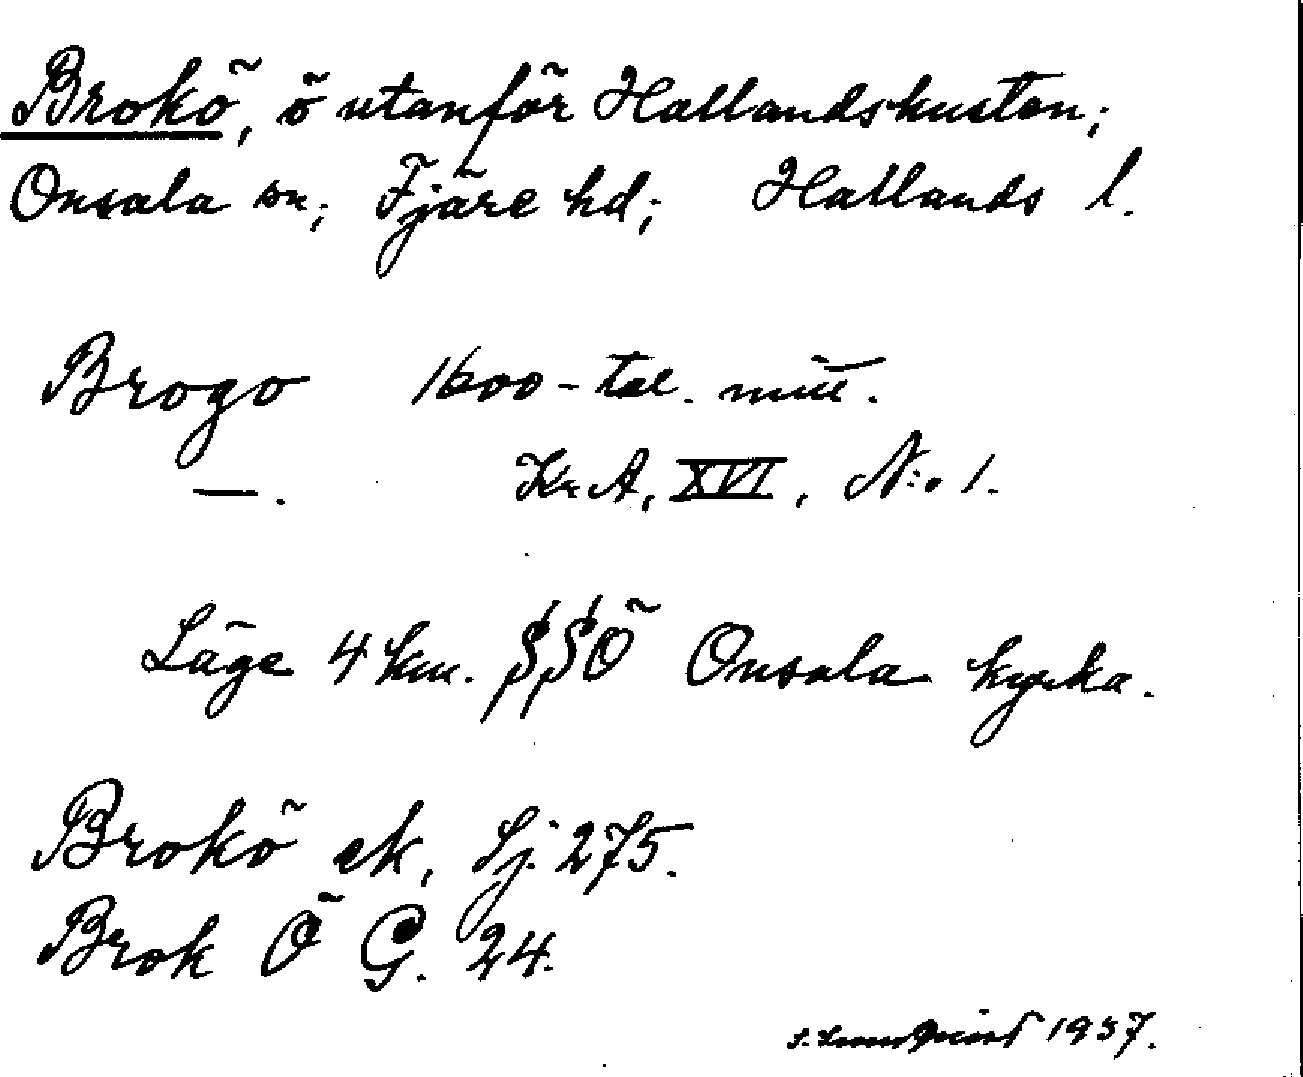 Brokö, ö utanför Hallandskusten;
Onsala sn; Fjäre hd; Hallands l.
Brogo 1600-tal. mitt.
—. Kr A, XVI, N:o 1.
Läge 4 km. SSÖ Onsala kyrka.
Brokö ek, Sj. 275.
Brok Ö G. 24.
1937.